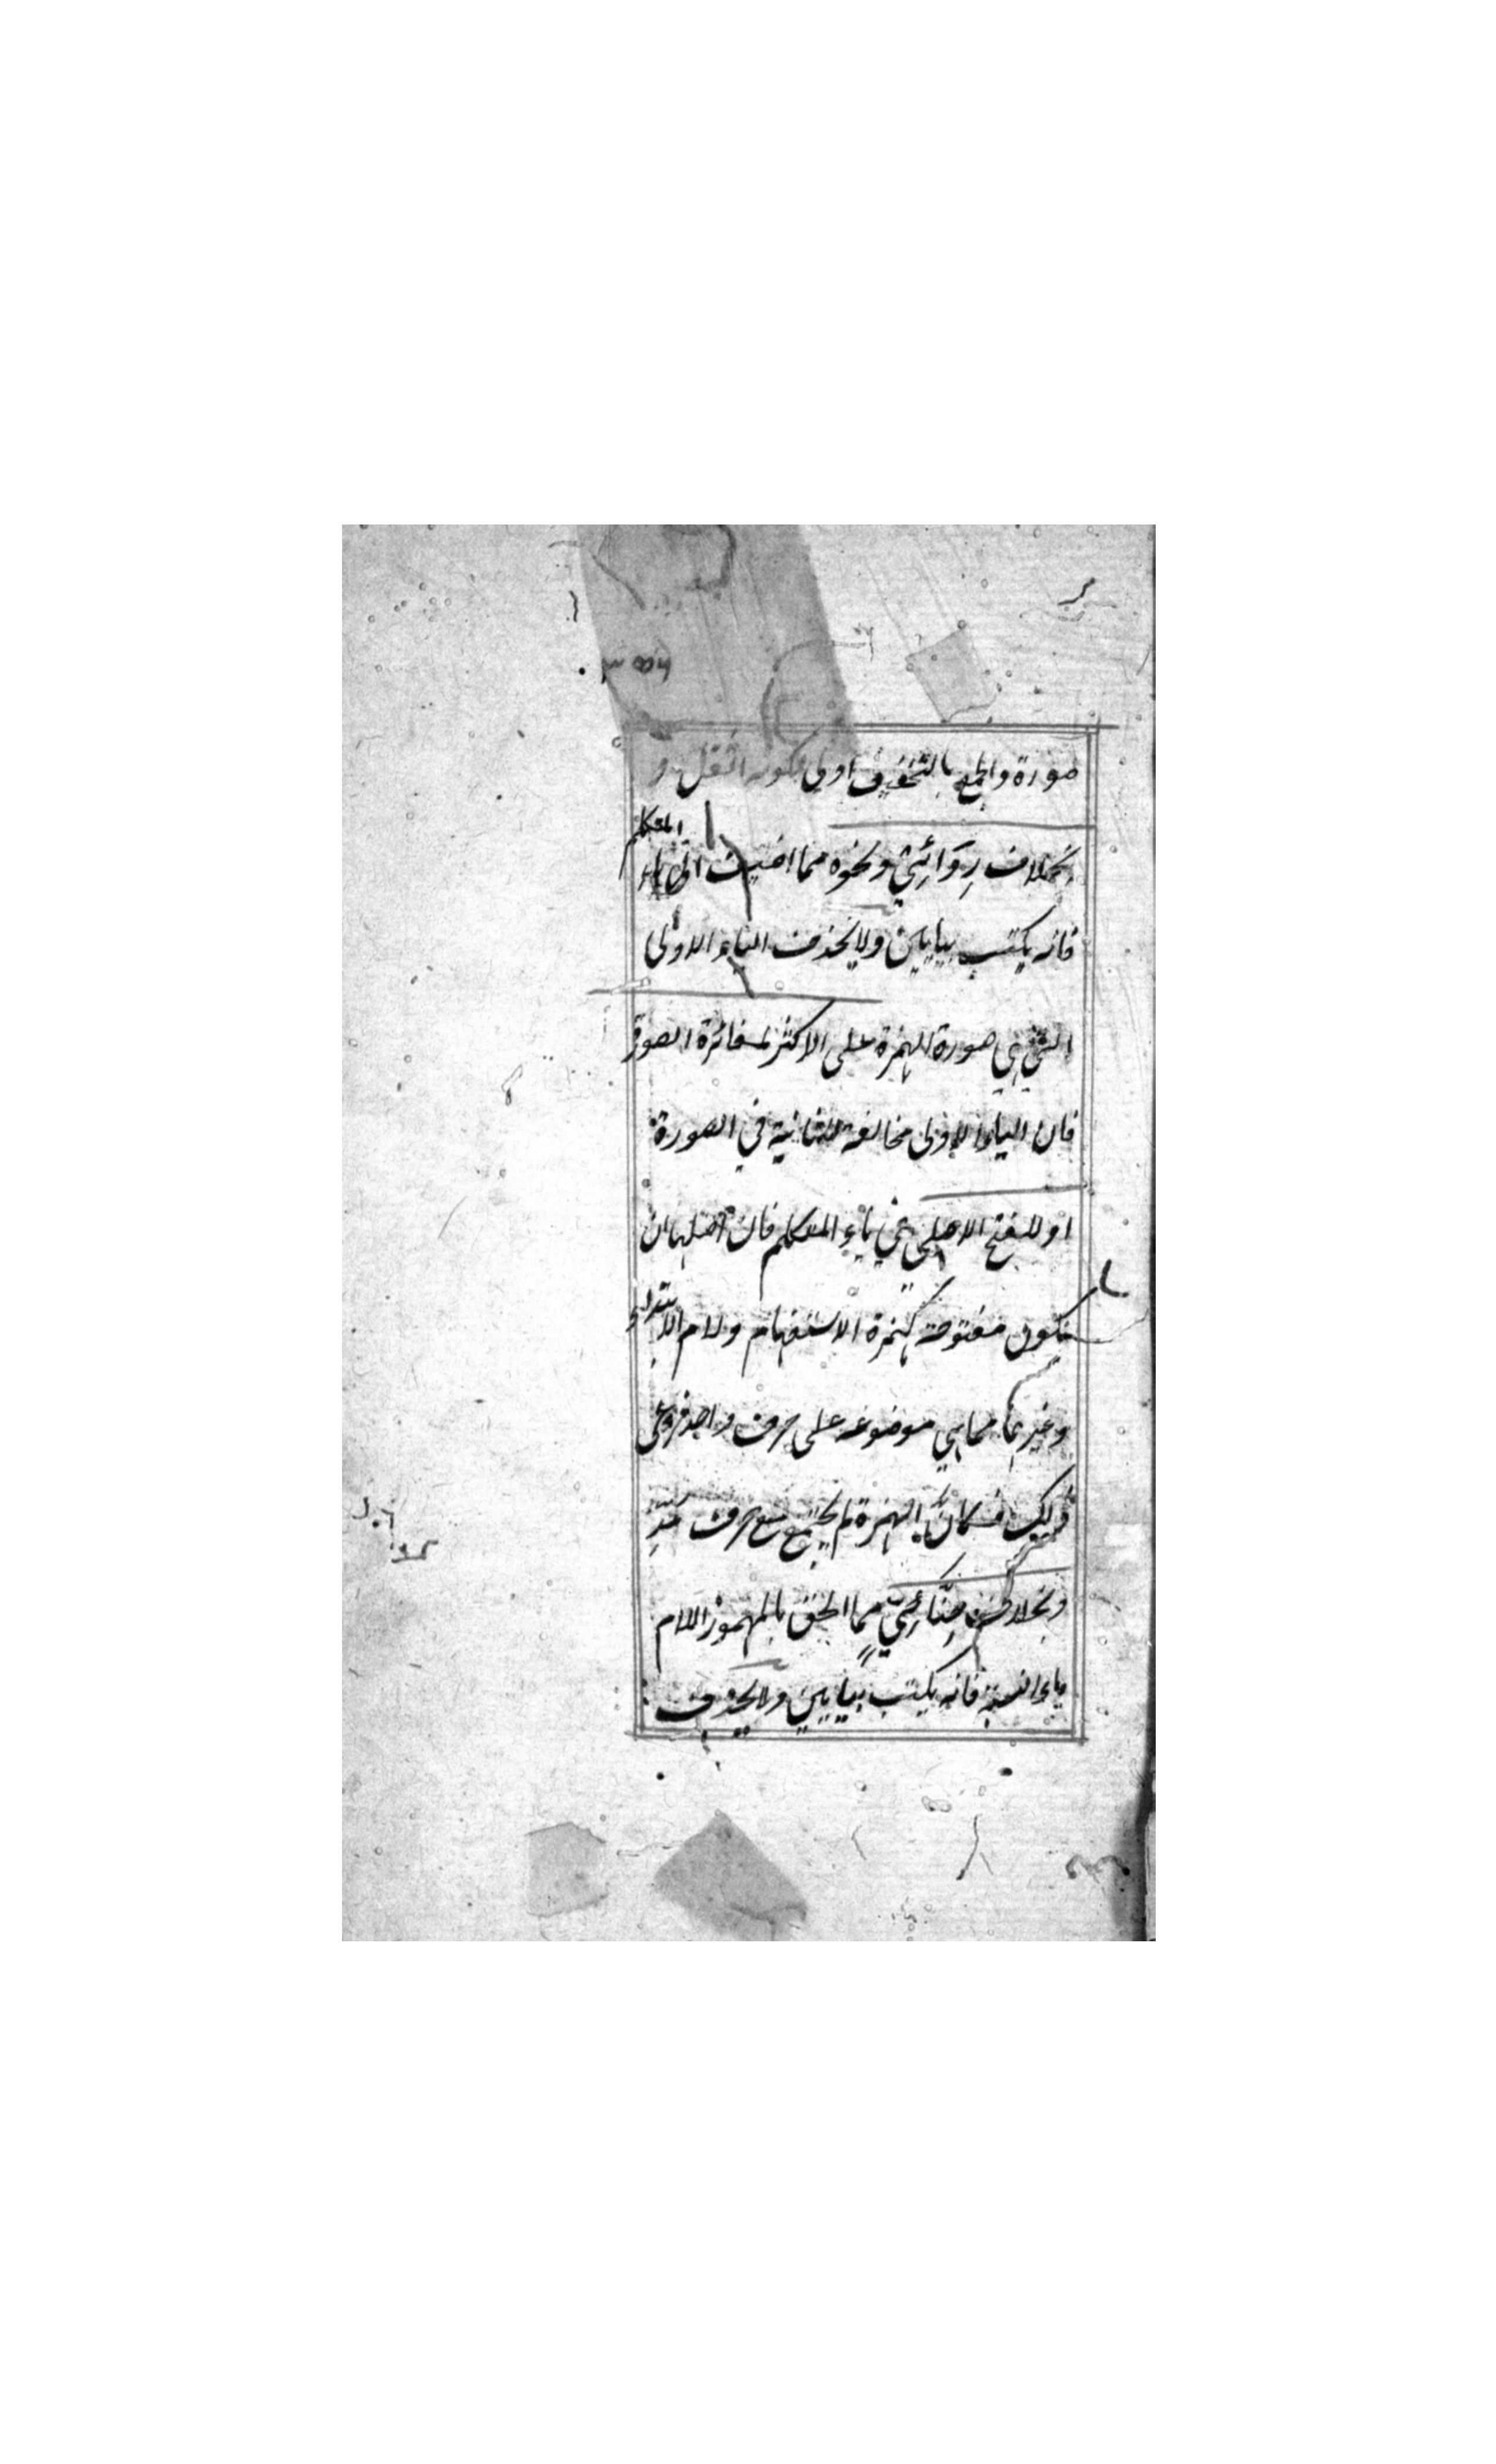 صورة والجمع بالتخفيف اولى لكونه اثقل و
بخلاف رِوَائِيْ ونحوه مما اضيف الى ياء المتكلم
فانه يكتب بيايين ولا يحذف الياء الاولى
التي هي صورة الهمزة على الاكثر لمغائرة الصورة
فان الياء الاولى مخالفة للثانية في الصورة
او للفتح الاصلي في ياء المتكلم فان اصلها ان
يكون مفتوحة كهمزة الاستفهام ولام الابتداء
وغيرهما مما هي موضوعة على حرف واحد فروعى
ذلك فكانَّ الهمزة لم يجتمع مع حرف مَدِّ
وبخلاف حِنَّائِيّ مما الحق بالمهموز اللام
ياء النسبة فانه يكتب بيايين ولا يحذف